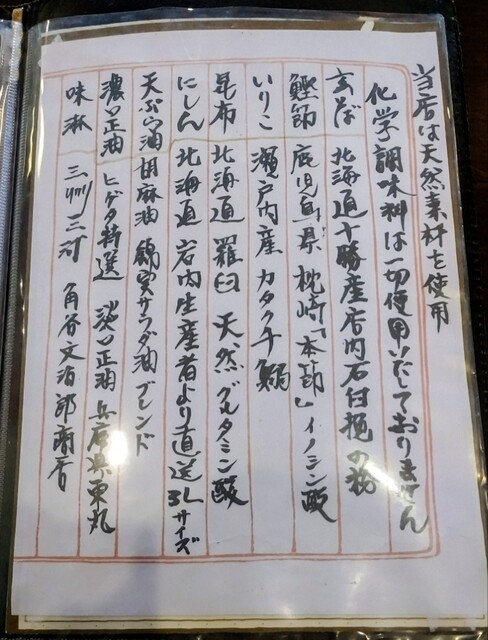 当店は天然素材を使用
化学調味料は一切使用いたしておりません
玄そば 北海道十勝産店内石臼挽の粉
鰹節 鹿児島県枕崎「本節」イノシン酸
いりこ 瀬戸内産 カタクチ鰯
昆布 北海道 羅臼 天然グルタミン酸
にしん 北海道 岩内生産者より直送3Lサイズ
天ぷら油 胡麻油 綿実サラダ油ブレンド
濃口正油 ヒゲタ特選 淡口正油 兵庫県東丸
味淋 三州三河 角谷文治郎商店